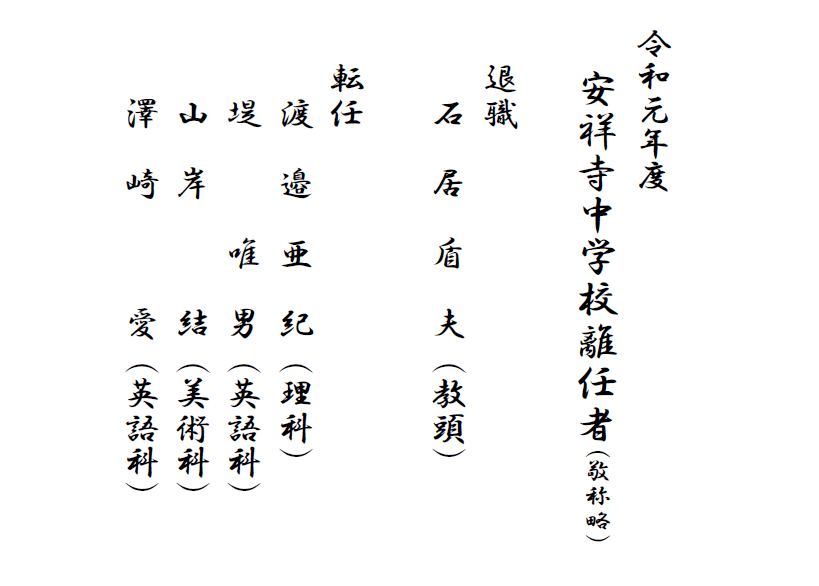 令和元年度
安祥寺中学校離任者（敬称略）
退職
石居盾夫（教頭）
転任
渡邉亜紀（理科）
堤唯男（英語科）
山岸結（美術科）
澤崎愛（英語科）